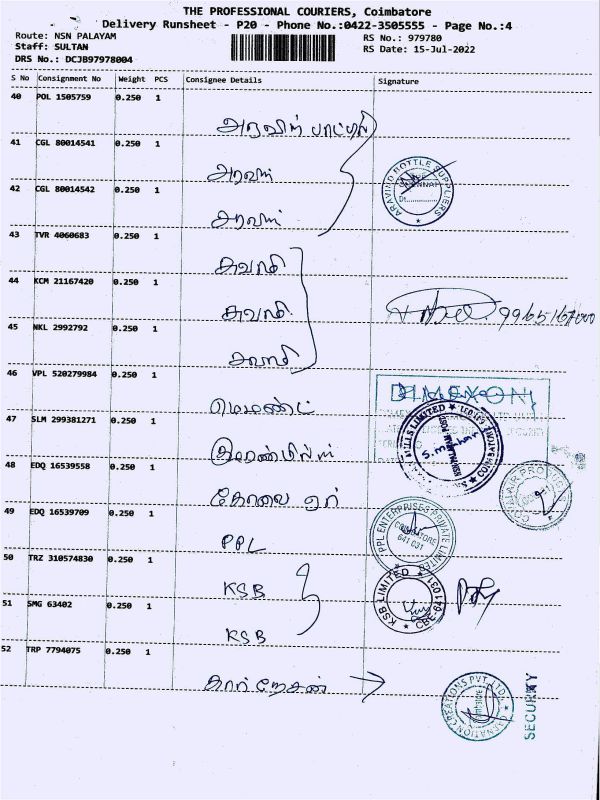 THE PROFESSIONAL COURIERS, Coimbatore
Delivery Runsheet - P20 - Phone No.:0422-3505555 - Page No.:4
Route: NSN PALAYAM RS No.: 979780
Staff: SULTAN RS Date: 15-Jul-2022
DRS No.: DCJB97978004
S No Consignment No Weight PCS Consignee Details Signature
40 POL 1505759 0.250 1
அரவிந் பாட்டில்
41 CGL 80014541 0.250 1
அரவிந்
ARAVIND BOTTLE SUPPLIERS
42 CGL 80014542 0.250 1
அரவிந்
43 TVR 4060683 0.250 1
சுவாதி
44 KCM 21167420 0.250 1
சுவாதி
45 NKL 2992792 0.250 1
சுவாதி
46 VPL 520279984 0.250 1
DIMEXON
47 SLM 299381271 0.250 1
48 EDQ 16539558 0.250 1
கோவை ஏர்
49 EDQ 16539709 0.250 1
PPL ENTERPRISES PRIVATE LIMITED
COIMBATORE
641 031
PPL
50 TRZ 310574830 0.250 1
KSB
KSB LIMITED CBE-641031
51 SMG 63402 0.250 1
KSB
52 TRP 7794075 0.250 1
SECURITY